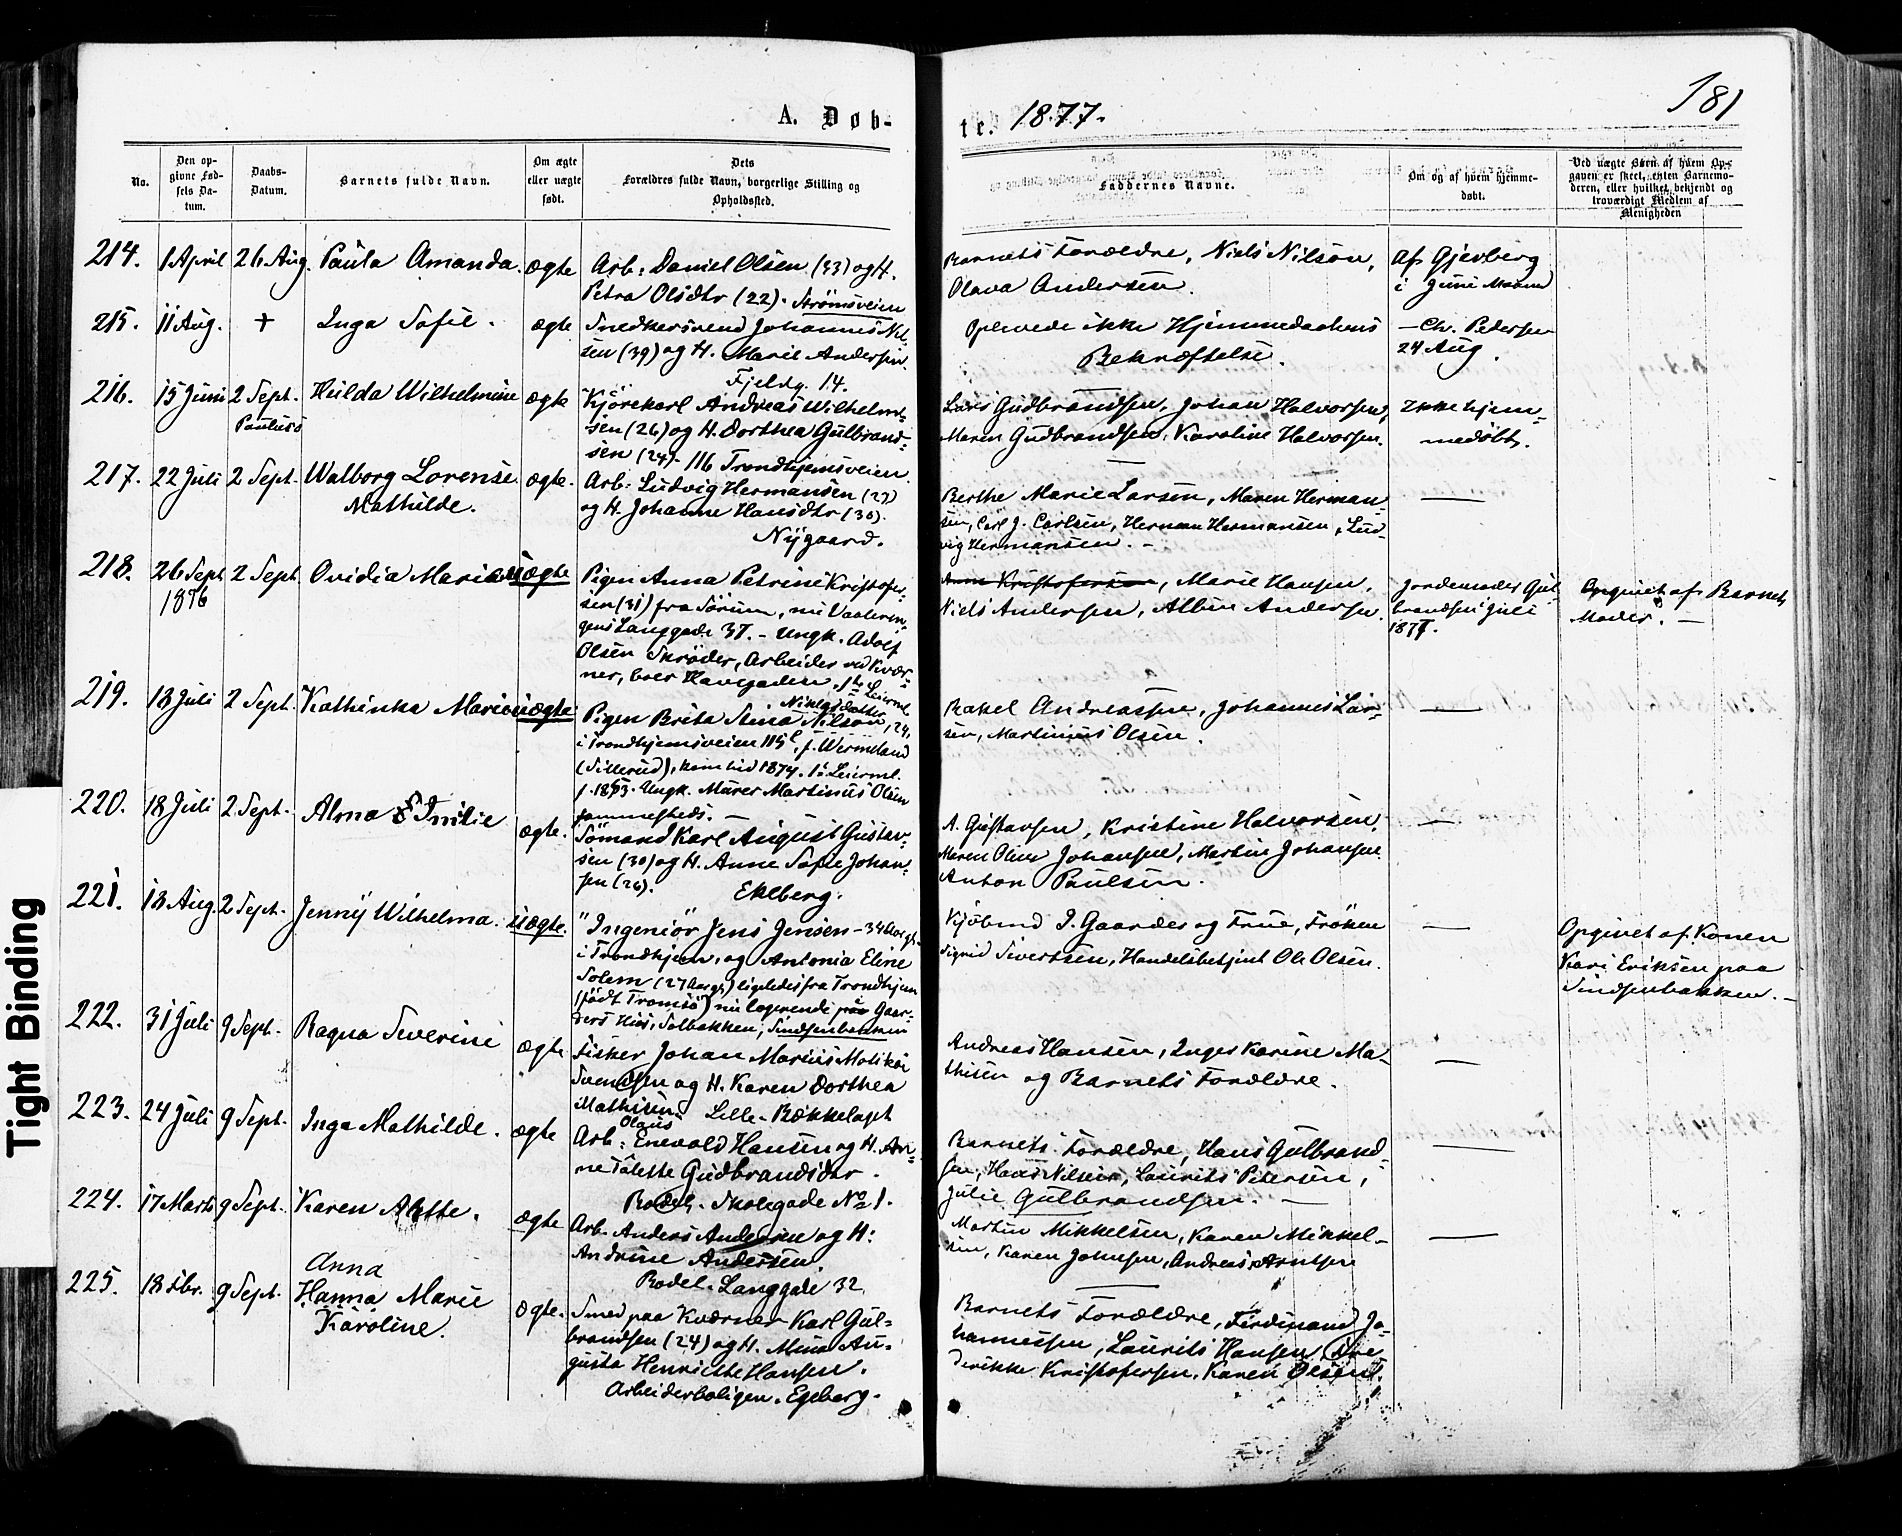 181
A. Døb-
te. 1877.
No.
Den op-
givne Fød-
sels Da-
tum.
Daabs-
Datum.
Barnets fulde Navn.
Om ægte
eller uægte
født.
Dets
Forældres fulde Navn, borgerlige Stilling og
Opholdssted.
Faddernes Navne.
Om og af hvem hjemme-
døbt.
Ved uægte Børn af hvem Op-
gaven er skeet, enten Barnemo-
deren, eller hvilket bekjendt og
troværdigt Medlem af
Menigheden
214. 1 April 26 Aug. Paula Amanda. ægte
Arb: Daniel Olsen (33) og H.
Petra Olsdtr (22). Strømsveien
Barnets Forældre, Niels Nilson,
Olava Andersen.
Af Gjerberg
i Juni Maaned
215. 11 Aug. + Inga Sofie. ægte
Snedkersvend Johannes Nil-
sen (39) og H. Marie Andersen.
Fjeldg. 14.
Oplevede ikke Hjemmedaabens
Bekræftelse.
— Chr. Pedersen
24 Aug.
216. 15 Juni 2 Sept. Hulda Wilhelmine ægte
Paulus
Kjørekarl Andreas Wilhelm-
sen (26) og H. Dorthea Gulbrand-
sen (24) - 116 Trondhjemsveien
Lars Gudbrandsen, Johan Halvorsen,
Maren Gudbrandsen, Karoline Halvorsen.
Ikke hjem-
medøbt.
217. 22 Juli 2 Sept. Walborg Lorense ægte.
Mathilde.
Arb: Ludvig Hermansen (27)
og H. Johanne Hansdtr (30).
Nygaard.
Berthe Marie Larsen, Maren Herman-
sen, Carl J. Carlsen, Herman Hermansen, Lud-
vig Hermansen. —
—
218. 26 Sept. 2 Sept. Ovidia Marie uægte
1876
Pigen Anna Petrine Kristofer-
sen (31) fra Sørum, nu Vaaleren-
gens Langgade 37. - Ungk. Adolf
Olsen Skrøder, Arbeider ved Kvær-
ner, boer Havegaden. 1ste Leierml.
Anna Kristofersen, Marie Hansen,
Niels Andersen, Albin Andersen.
Jordemoder Gul-
brandsen Juli
1877.
Opgivet af Barnets
Moder. —
219. 13 Juli 2 Sept. Kathinka Marie uægte
Niklasdatter
Pigen Brita Stina Nilson, 24,
i Trondhjemsveien 115, f. Wermeland
(Sillerud), kom hid 1874. 1ste Leierml.
f. 1853. Ungk. Murer Martinus Olsen
sammesteds. —
Rakel Andreassen, Johannes Lar-
sen, Martinius Olsen.
—
220. 18 Juli 2 Sept. Alma Emilie ægte.
Sømand Karl August Gustav-
sen (30) og H. Anne Sofie Johan-
sen (26). Ekeberg.
A. Gustavsen, Kristine Halvorsen,
Maren Oline Johansen, Martin Johansen
Anton Paulsen.
—
221. 18 Aug. 2 Sept. Jenny Wilhelma. uægte.
"Ingeniør Jens Jensen - 34 Aar g.-
i Trondhjem, og Antonia Eline
Solem (27 Aar g.) ligeledes fra Trondhjem
(født Tromsø) nu logerende paa Gaar-
ders Hus, Solbakken, Sindsenbakken
Kjøbmd J. Gaarder og Frue, Frøken
Sigrid Sivertsen, Handelsbetjent Ole Olsen.
—
Opgivet af Konen
Kari Eriksen paa
Sindsenbakken. —
222. 31 Juli 9 Sept. Ragna Severine ægte
Fisker Johan Marius Molikoi
Svendsen og H. Karen Dorthea
Mathisen. Lille-Bækkelaget
Andreas Hansen, Inger Karine Ma-
thisen og Barnets Forældre.
—
223. 24 Juli 9 Sept. Inga Mathilde. ægte
Olaus
Arb: Enevold Hansen og H. An-
ne Tolette Gudbrandsdtr.
Rodel. Skolegade No 1.
Barnets Forældre, Hans Gulbrand-
sen, Hans Nilsen, Laurits Petersen,
Julie Gulbrandsen. —
—
224. 17 Marts 9 Sept. Karen Alette. ægte
Arb. Anders Andersen og H:
Andrine Andersen.
Rodel. Langgade 32.
Martin Mikkelsen, Karen Mikkel-
sen, Karen Johnsen, Andreas Arntsen
—
225. 18 Fbr. 9 Sept. Anna
Hanna Marie ægte.
Karoline.
Smed paa Kværner Karl Gul-
brandsen (24) og H. Mina Au-
gusta Henriette Hansen.
Arbeiderboligen. Egeberg.
Barnets Forældre, Ferdinand Jo-
hannessen, Laurits Hansen, Fre-
derikke Kristofersen, Karen Olsen.
Tight Binding